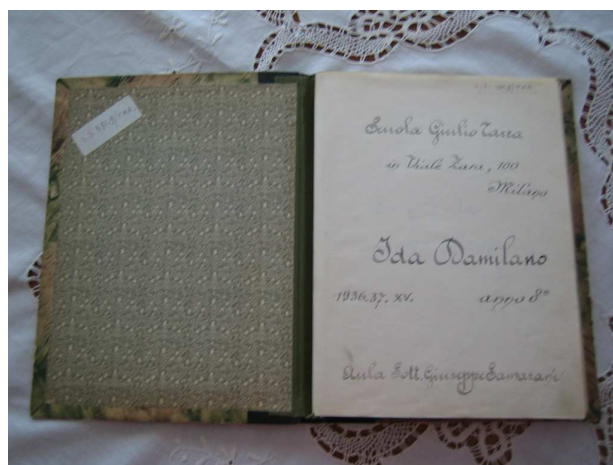 Scuola Giulio Tarra
in Viale Zara, 100
Milano
Ida Damilano
1936.37. XV. anno 8°
Aula Sott. Giuseppe